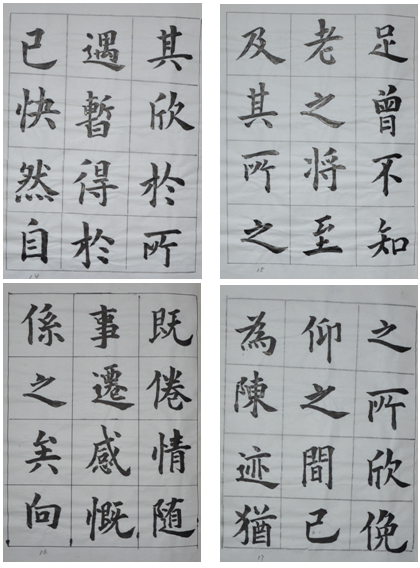 其欣於所
遇暫得於
已快然自
14
足曾不知
老之将至
及其所之
15
既倦情随
事遷感慨
係之矣向
16
之所欣俛
仰之間已
為陳迹猶
17